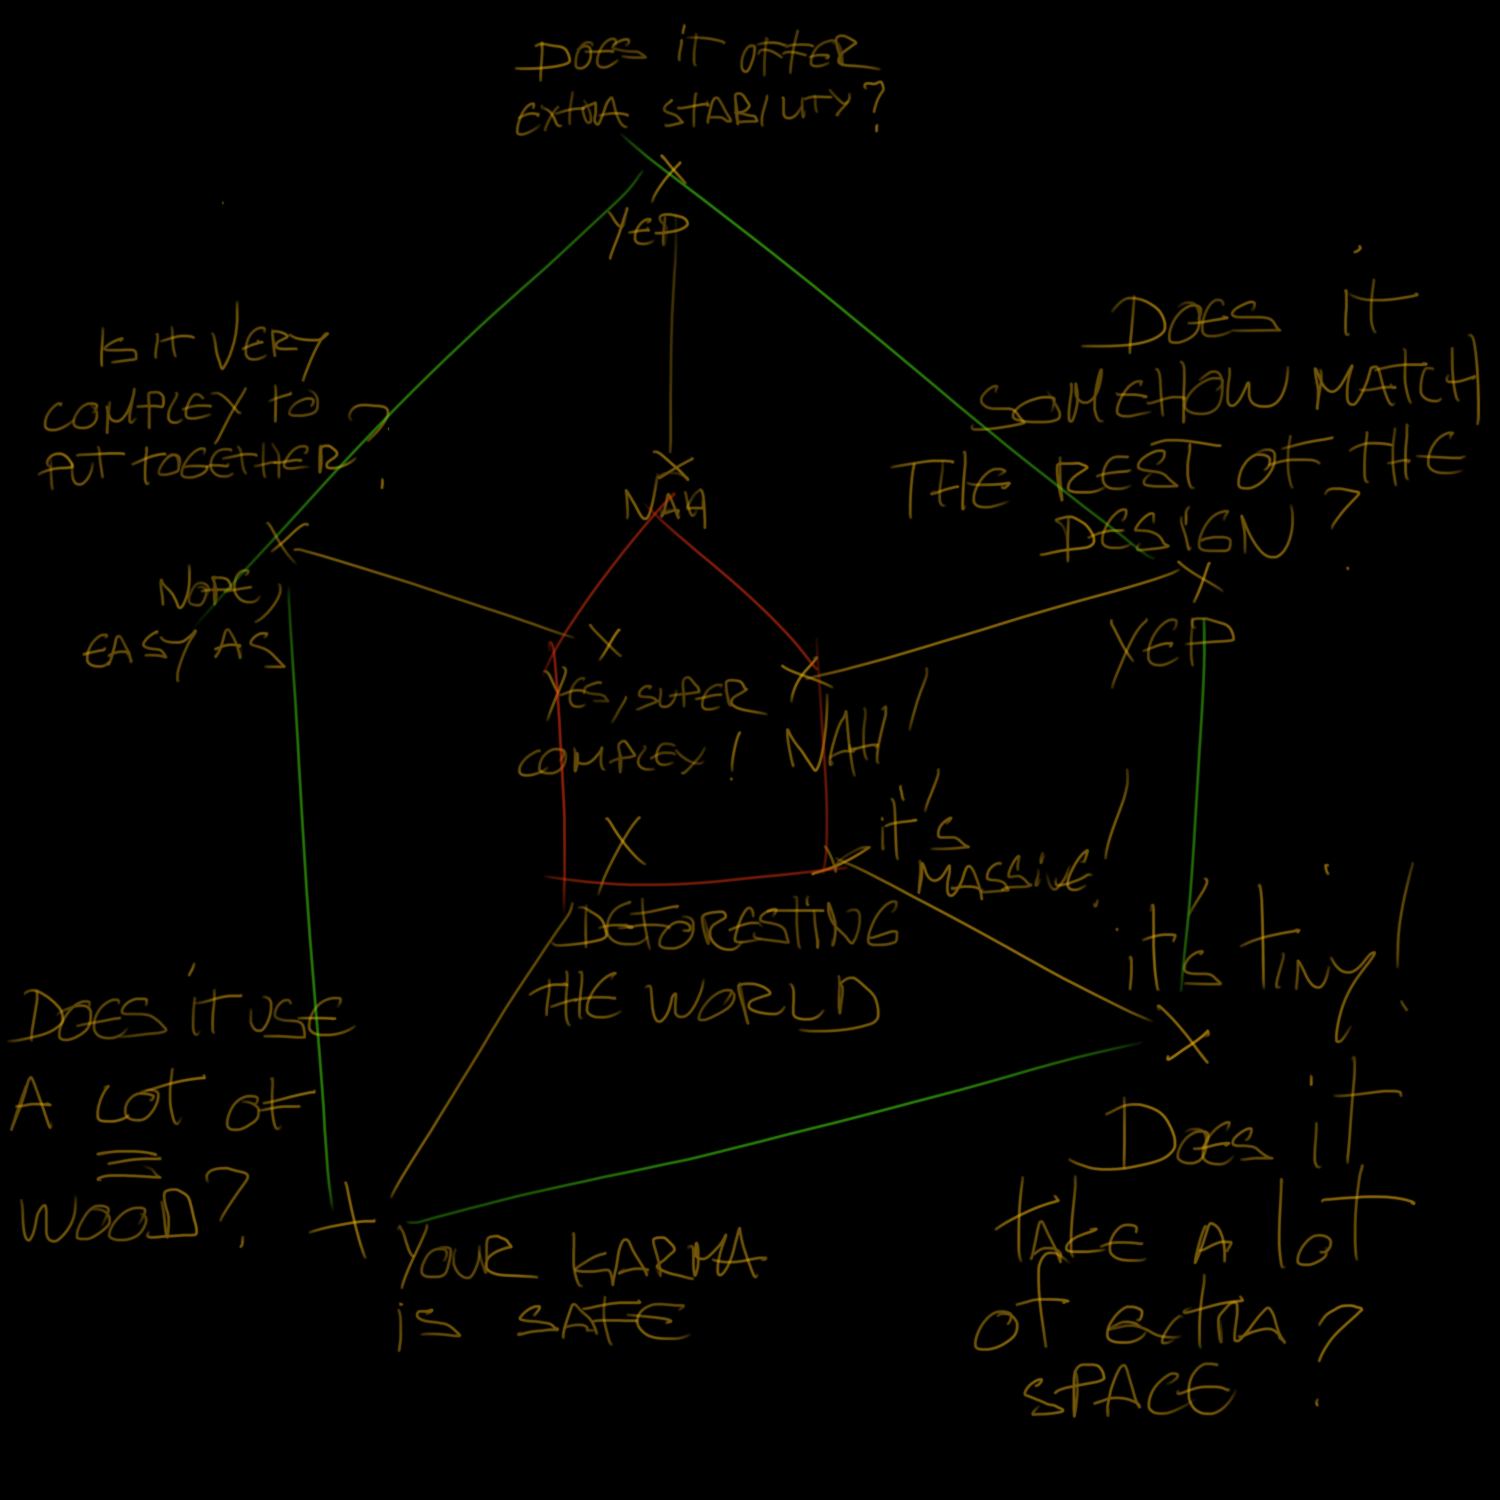 DOES iT OFFER
EXTRA STABILITY?
YEP
IS IT VERY
COMPLEX TO
PUT TOGETHER?
NOPE,
EASY AS
DOES iT
SOMEHOW MATCH
THE REST OF THE
DESIGN?
YEP
NAH
YES, SUPER
COMPLEX!
NAH!
iT'S
MASSIVE!
DEFORESTING
THE WORLD
iT'S TiNY!
DOES iT
TAKE A lOT
OF EXTRA
SPACE?
DOES iT USE
A LOT OF
WOOD?
YOUR KARMA
iS SAFE